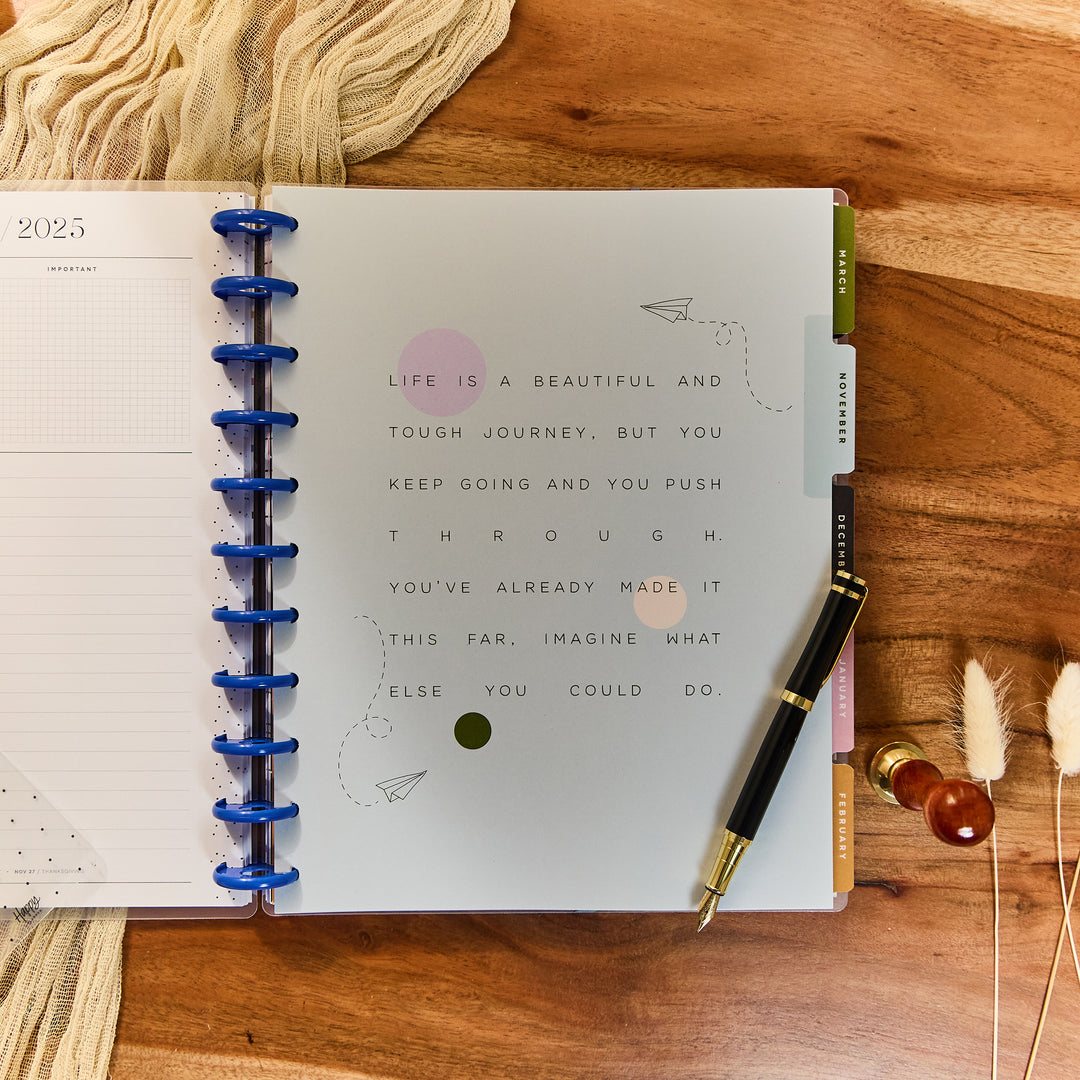 / 2025
IMPORTANT
• NOV 27 / THANKSGIVING
Happy
LIFE IS A BEAUTIFUL AND
TOUGH JOURNEY, BUT YOU
KEEP GOING AND YOU PUSH
T H R O U G H.
YOU'VE ALREADY MADE IT
THIS FAR, IMAGINE WHAT
ELSE YOU COULD DO.
MARCH
NOVEMBER
DECEMB
JANUARY
FEBRUARY